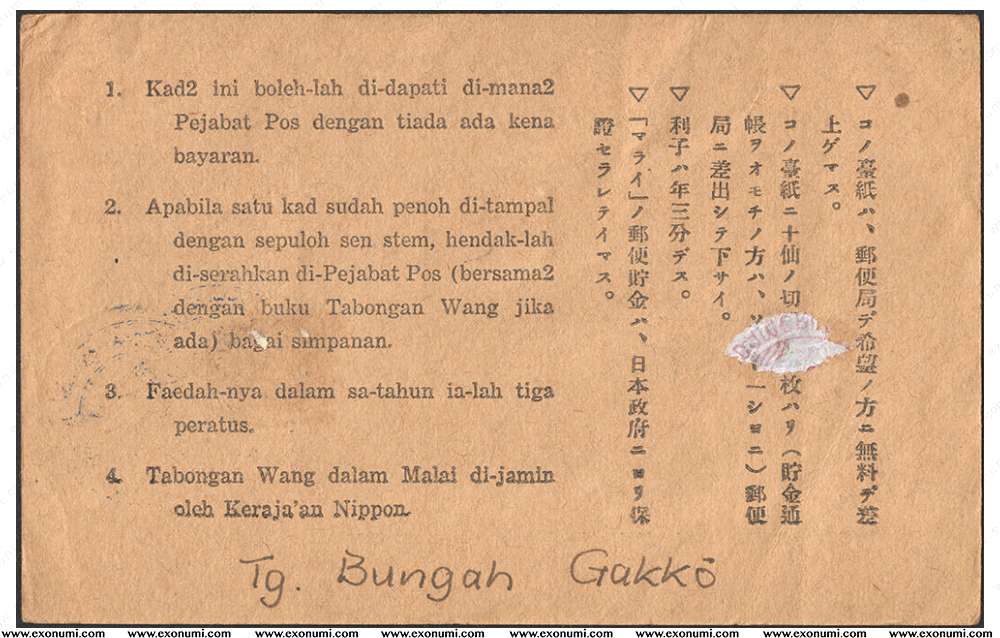 1. Kad2 ini boleh-lah di-dapati di-mana2
Pejabat Pos dengan tiada ada kena
bayaran.
2. Apabila satu kad sudah penoh di-tampal
dengan sepuloh sen stem, hendak-lah
di-serahkan di-Pejabat Pos (bersama2
dengan buku Tabongan Wang jika
ada) bagai simpanan.
3. Faedah-nya dalam sa-tahun ia-lah tiga
peratus.
4. Tabongan Wang dalam Malai di-jamin
oleh Keraja'an Nippon.
▽ コノ臺紙ハ、郵便局デ希望ノ方ニ無料デ差
上ゲマス。
▽ コノ臺紙ニ十仙ノ切 枚ハリ（貯金通
帳ヲオモチノ方ハ、 一シヨニ）郵便
局ニ差出シテ下サイ。
▽ 利子ハ年三分デス。
▽ 「マライ」ノ郵便貯金ハ、日本政府ニヨリ保
證セラレテイマス。
Tg. Bungah Gakkō
www.exonumi.com www.exonumi.com www.exonumi.com www.exonumi.com www.exonumi.com www.exonumi.com www.exonumi.com www.exonumi.com